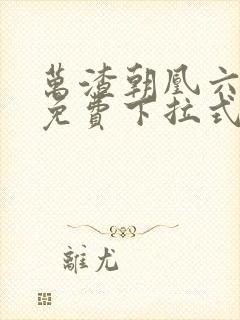 萬渣朝凰六
免費下拉式
離尤